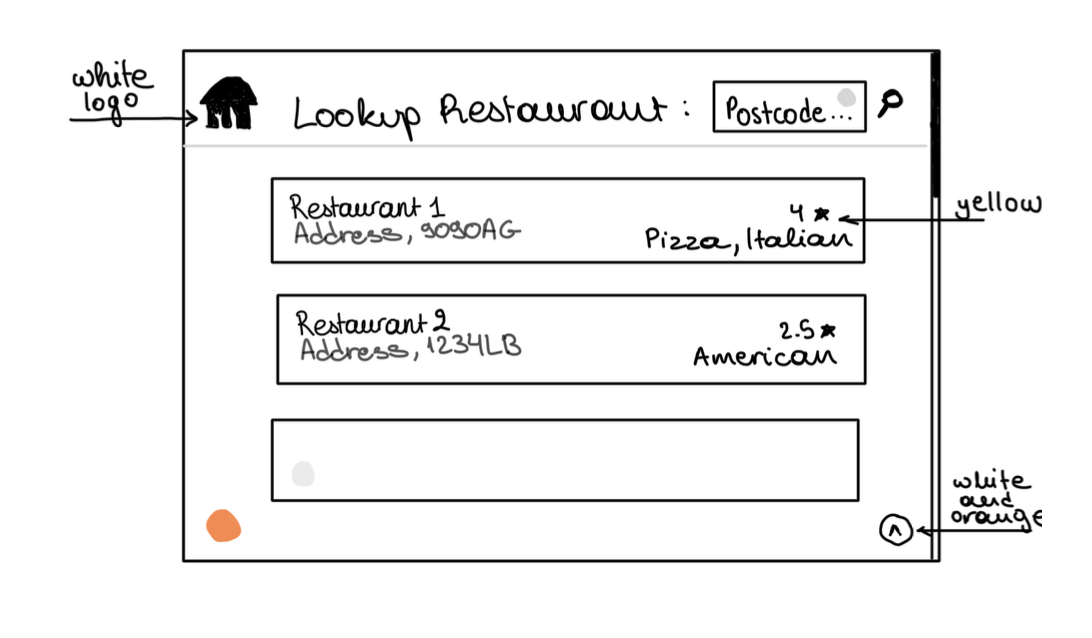 white
logo
Lookup Restaurant :
Postcode...
Restaurant 1
Address, 9090AG
4 ★
Pizza, Italian
yellow
Restaurant 2
Address, 1234LB
2.5 ★
American
white
and
orange